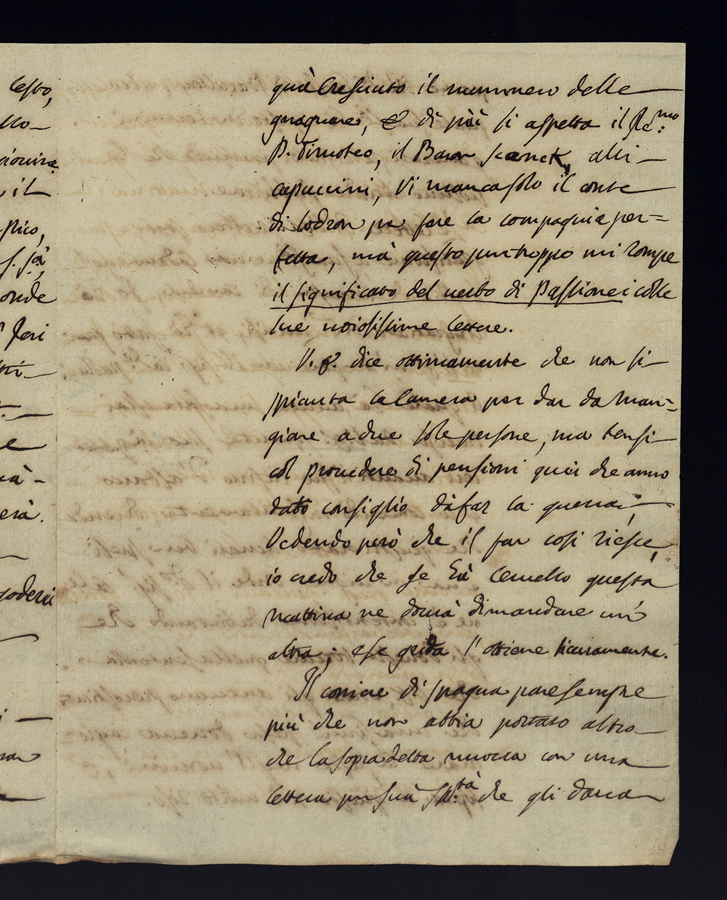 lesto,
llo-
il
onde
Jeri
erà.
goderà
quà Cresciuto il nummero delle
, & di più si aspetta il R.mo
P. Timoteo, il Baron, alli
capuccini, Vi manca solo il conte
di Lodron per fare la compagnia per=
fetta, mà questo purtroppo mi rompe
il significato del uerbo di Passione i colle
sue noiosissime lettere.
V. S. dice ottimamente che non si
pianta la Camera per dar da Man=
giare a due sole persone, ma bensi
col prouedere di pensioni quei che anno
dato consiglio dà far la guerra;
Vedendo però che il far cosi riesce,
io credo che se Lemello questa
mattina ne dourà dimandare un'
altra; e se grida l'ottiene sicuramente.
Il coriere di spagna pare sempre
più che non abbia portato altro
che la sopra detta nuoua con una
lettera per suà S.tà che gli daua